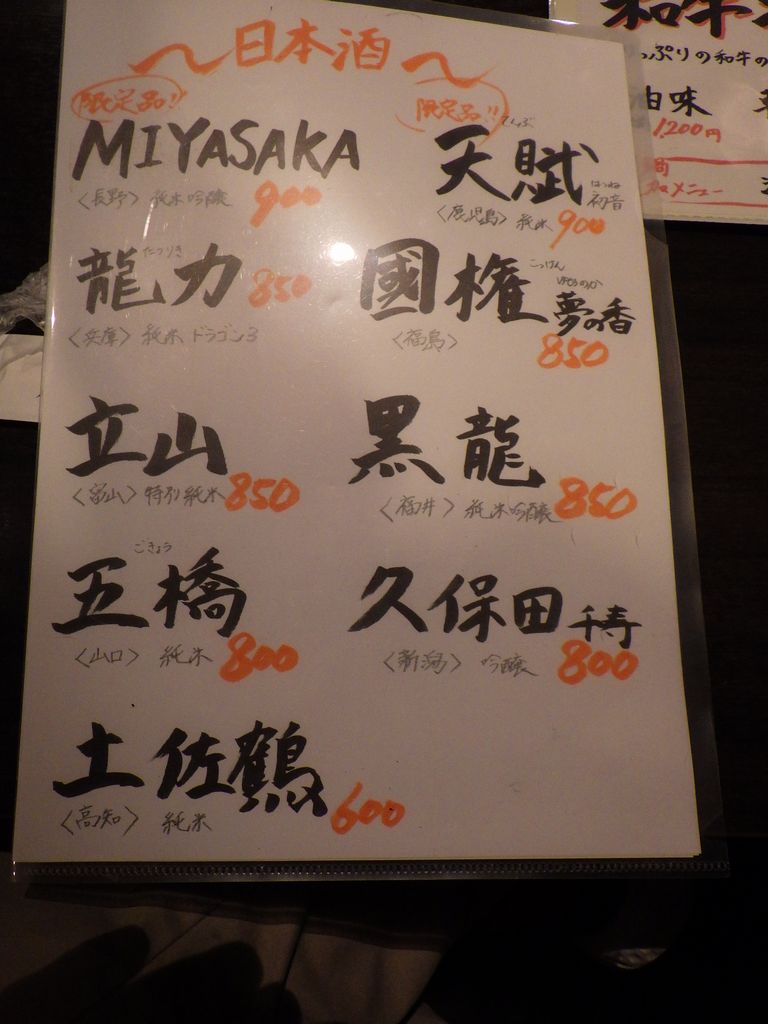 〜日本酒〜
限定品!!
MIYASAKA
〈長野〉 純米吟醸 900
限定品!!
てんぶ
天賦 はつね 初音
〈鹿児島〉 純米 900
たつりき
龍力 850
〈兵庫〉 純米 ドラゴン3
こっけん
國権 夢の香
〈福島〉 850
立山
〈富山〉 特別純米 850
黒龍
〈福井〉 純米吟醸 850
ごきょう
五橋
〈山口〉 純米 800
久保田 千寿
〈新潟〉 吟醸 800
土佐鶴
〈高知〉 純米 600
和牛
っぷりの和牛の
1,200円
メニュー